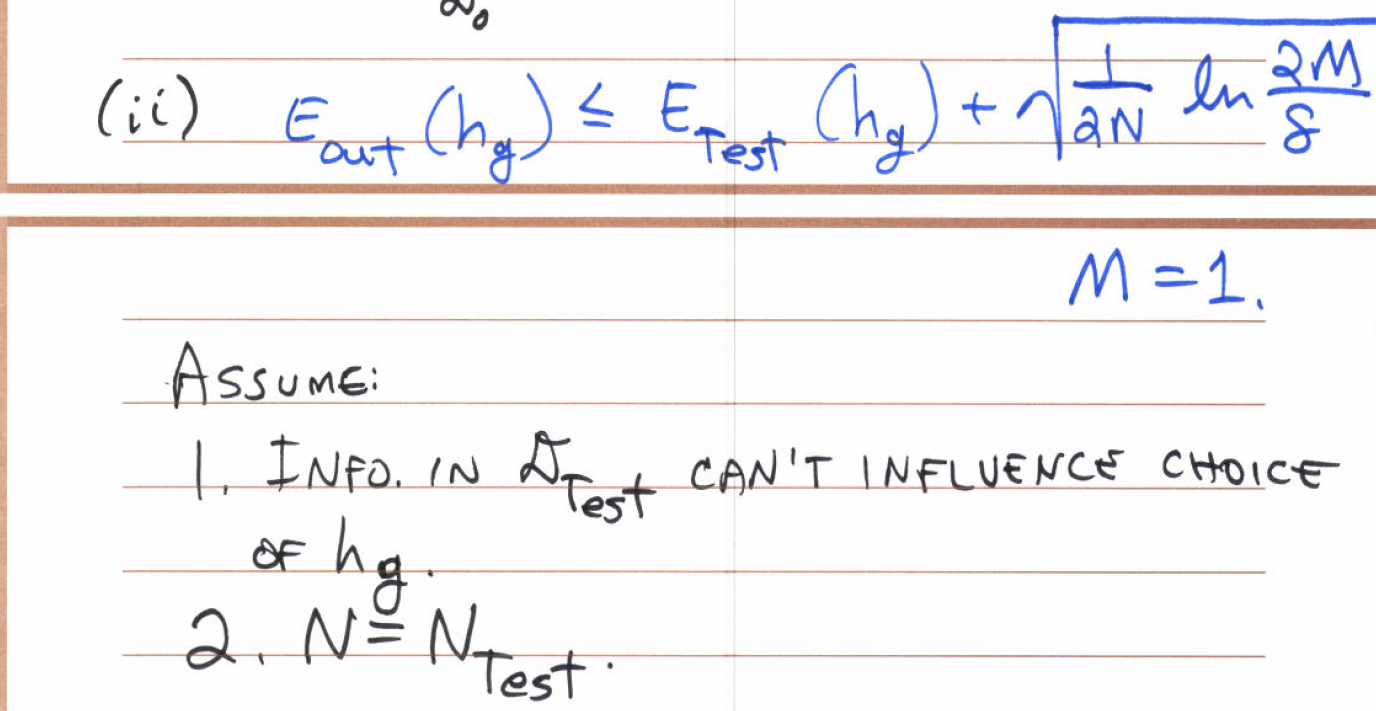 (ii) E_out (h_g) ≤ E_Test (h_g) + √(1/2N ln 2M/δ)
M = 1.
ASSUME:
1. INFO. IN 𝒟_Test CAN'T INFLUENCE CHOICE
OF h_g.
2. N = N_Test.